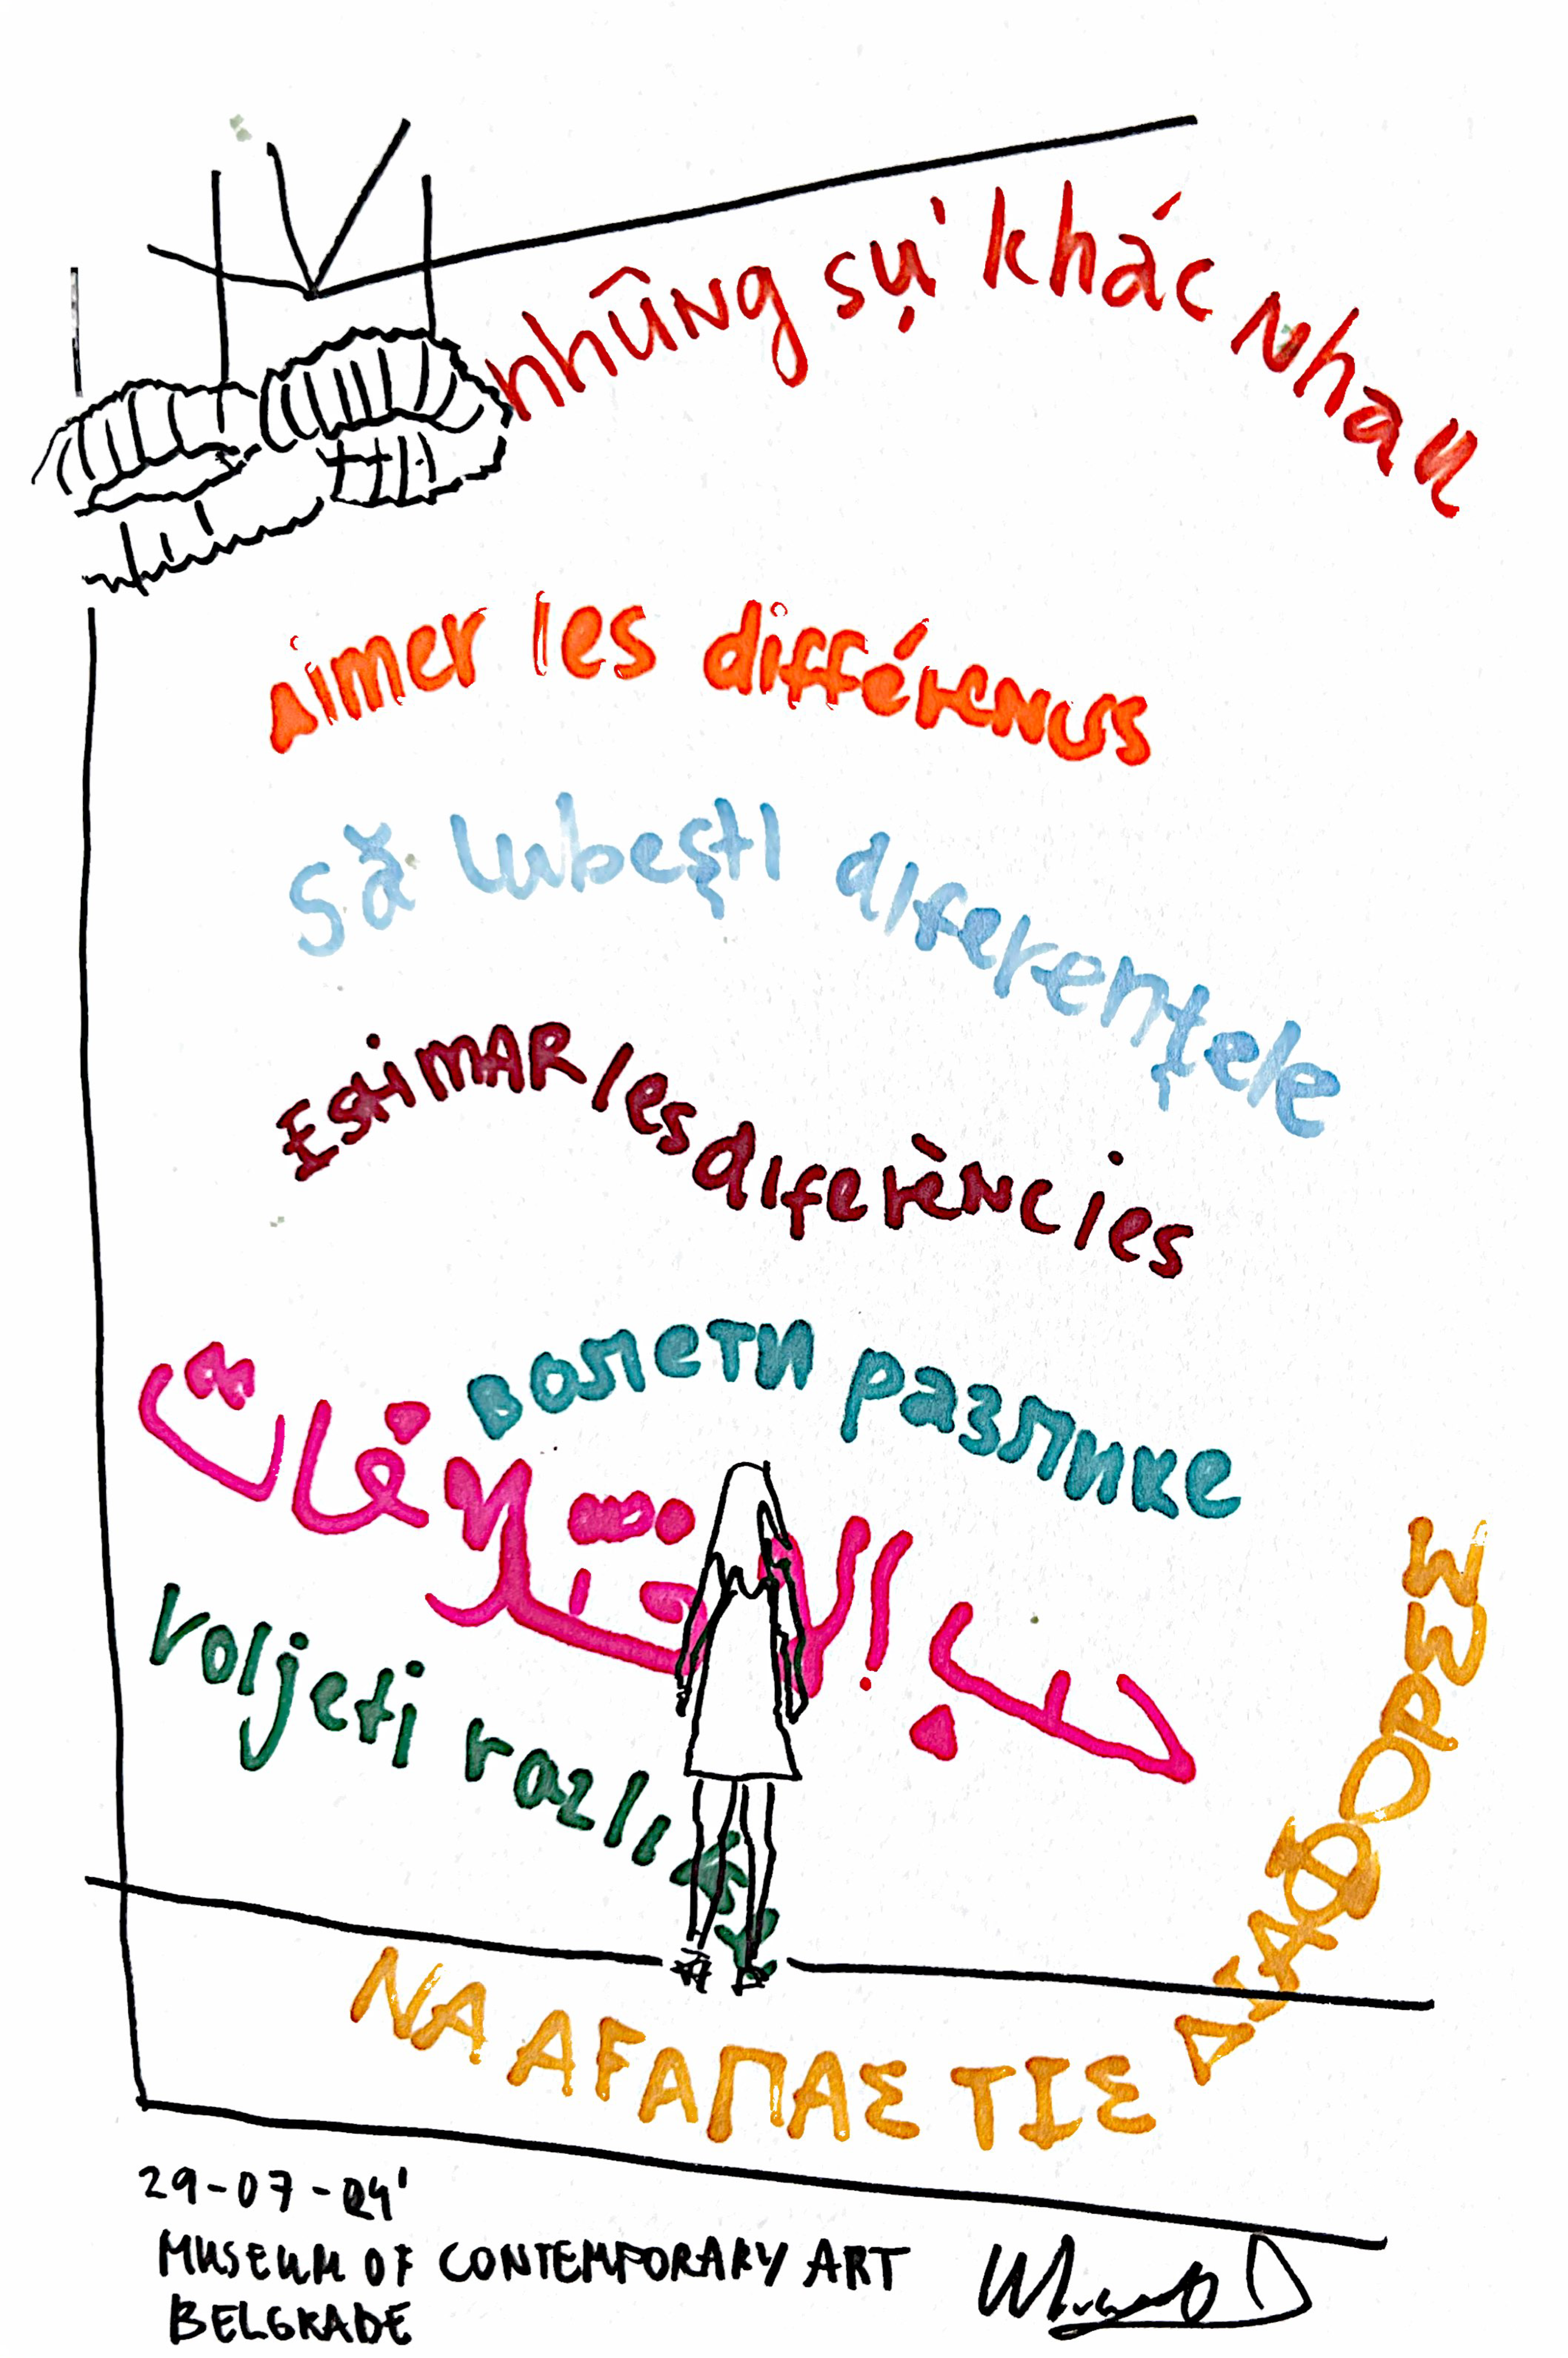 nhũng sự khác nhau
Aimer les différences
Să iubeşti diferenţele
Estimar les diferències
волети разлике
حب الإختلافات
voljeti razlike
ΝΑ ΑΓΑΠΑΣ ΤΙΣ ΔΙΑΦΟΡΕΣ
29-07-24'
MUSEUM OF CONTEMPORARY ART
BELGRADE